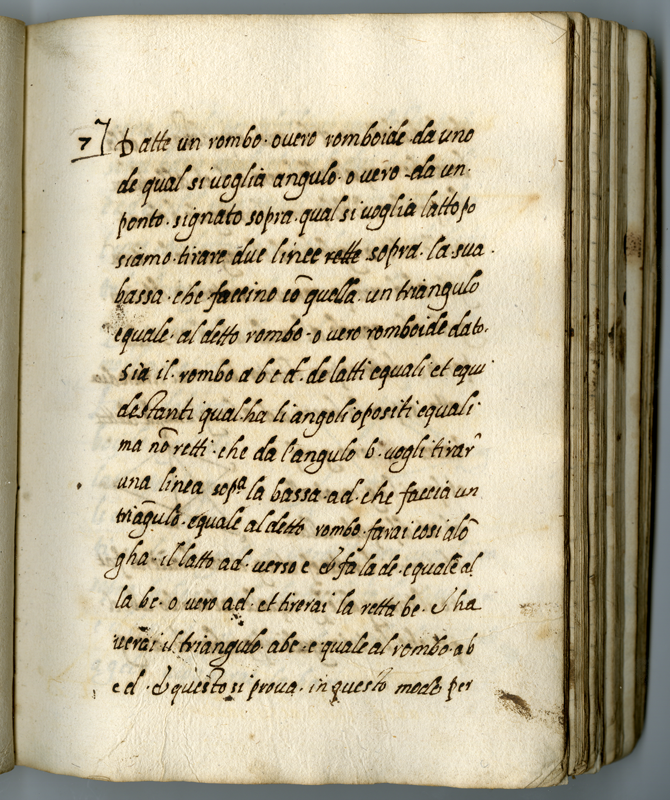 7 Datte un rombo · overo romboide da uno
de qual si voglia angulo · o vero da un ·
ponto · signato sopra · qual si voglia latto po
siamo · tirare due linee rette sopra · la sua ·
bassa · che faccino cō quella · un triangulo
equale · al detto rombo · o vero romboide dato ·
Sia il · rombo a b c d · de latti equali et equi
destanti qual ha li angoli opositi equali
ma nō retti · che da l'angulo b · vogli tirar̄
una linea sopᵃ la bassa · ad · che faccia un
triāgulo · equale al detto rombo · farai cosi alō
gha · il latto ad · verso e & fa la de · equale al
la bc · o vero ad · et tirerai la retta be · & ha
verai il triangulo abe · equale al rombo · ab
cd · & questo si prova · in questo modo per